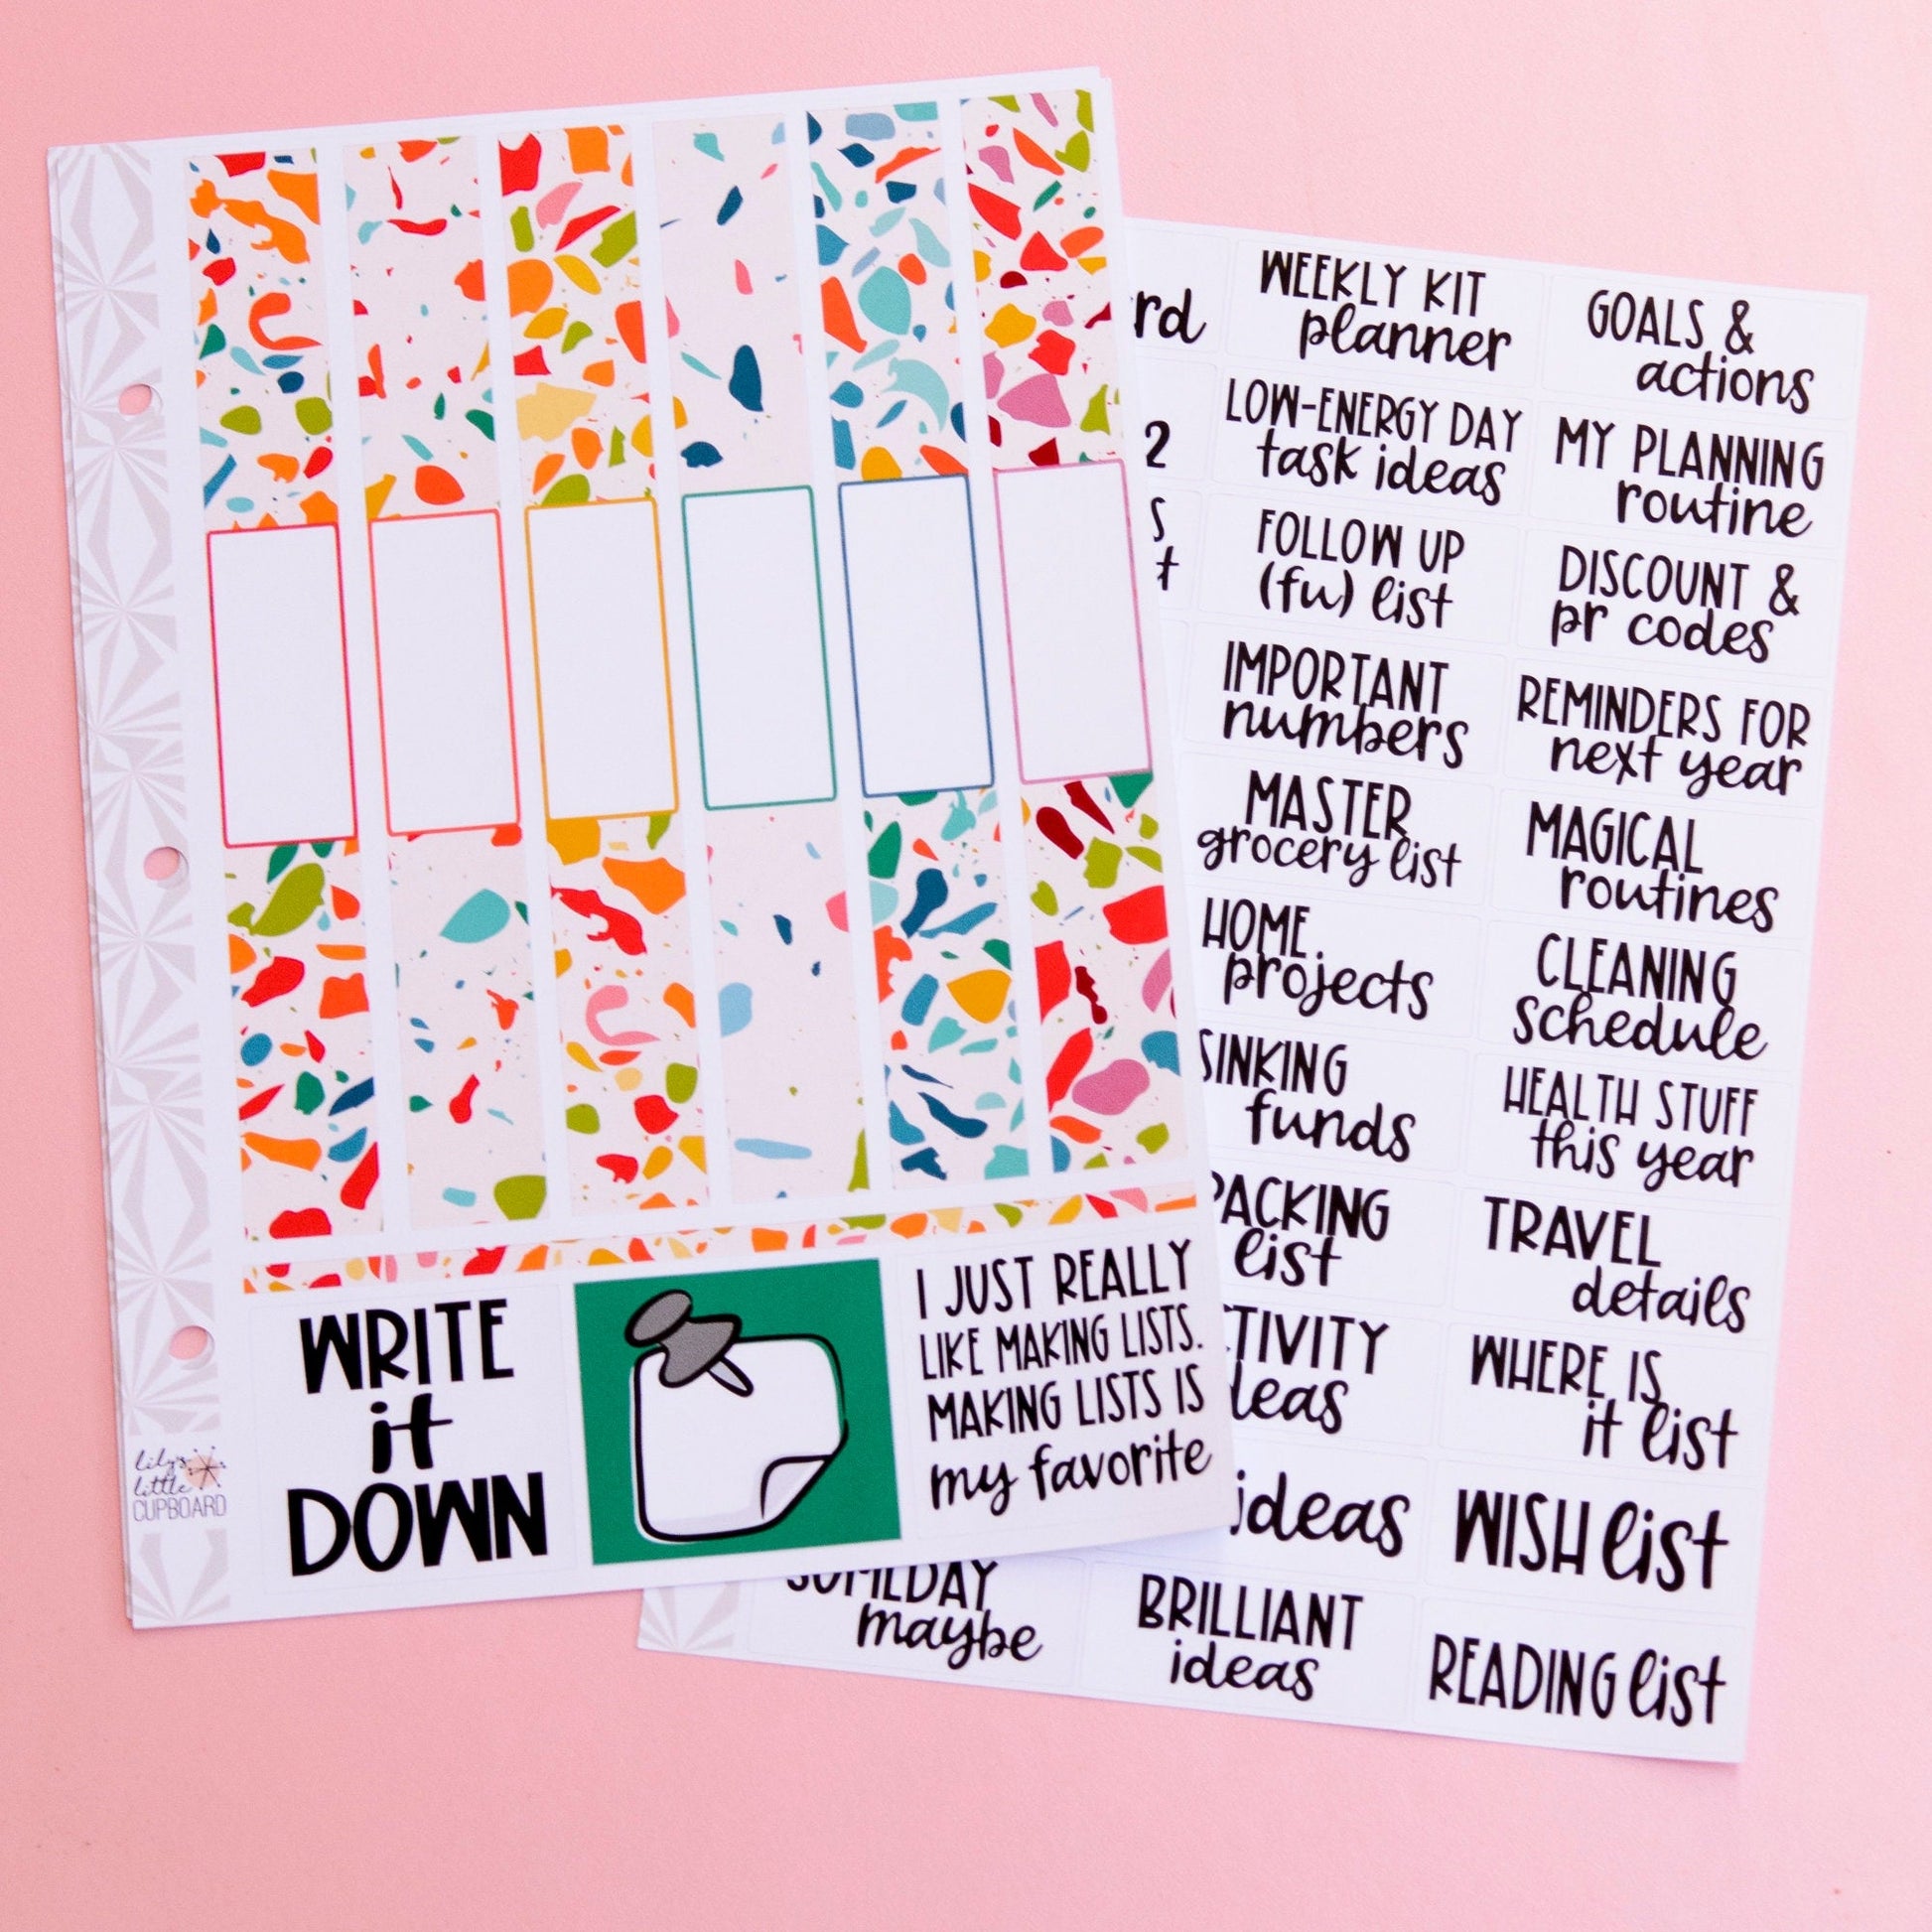 WRITE
it
DOWN
I JUST REALLY
LIKE MAKING LISTS.
MAKING LISTS IS
my favorite
lily's
little
CUPBOARD
WEEKLY KIT
planner
GOALS &
actions
2
LOW-ENERGY DAY
task ideas
MY PLANNING
routine
FOLLOW UP
(fu) list
DISCOUNT &
pr codes
IMPORTANT
numbers
REMINDERS FOR
next year
MASTER
grocery list
MAGICAL
routines
HOME
projects
CLEANING
schedule
SINKING
funds
HEALTH STUFF
this year
PACKING
list
TRAVEL
details
WHERE IS
it list
ideas
WISH list
SOMEDAY
maybe
BRILLIANT
ideas
READING list